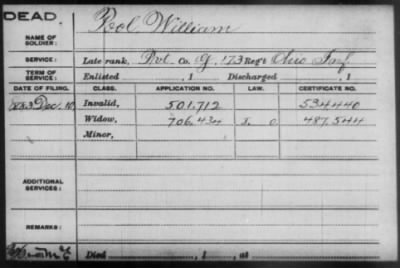 DEAD. Pool, William
NAME OF SOLDIER:
SERVICE: Late rank, Pvt. Co. G, 173 Reg't Ohio Inf.
TERM OF SERVICE: Enlisted , 1 Discharged , 1
DATE OF FILING. CLASS. APPLICATION NO. LAW. CERTIFICATE NO.
1883 Dec. 10, Invalid, 501.712 534440
Widow, 706,434 J. O 487,544
Minor,
ADDITIONAL SERVICES:
REMARKS:
Died , 1 , at